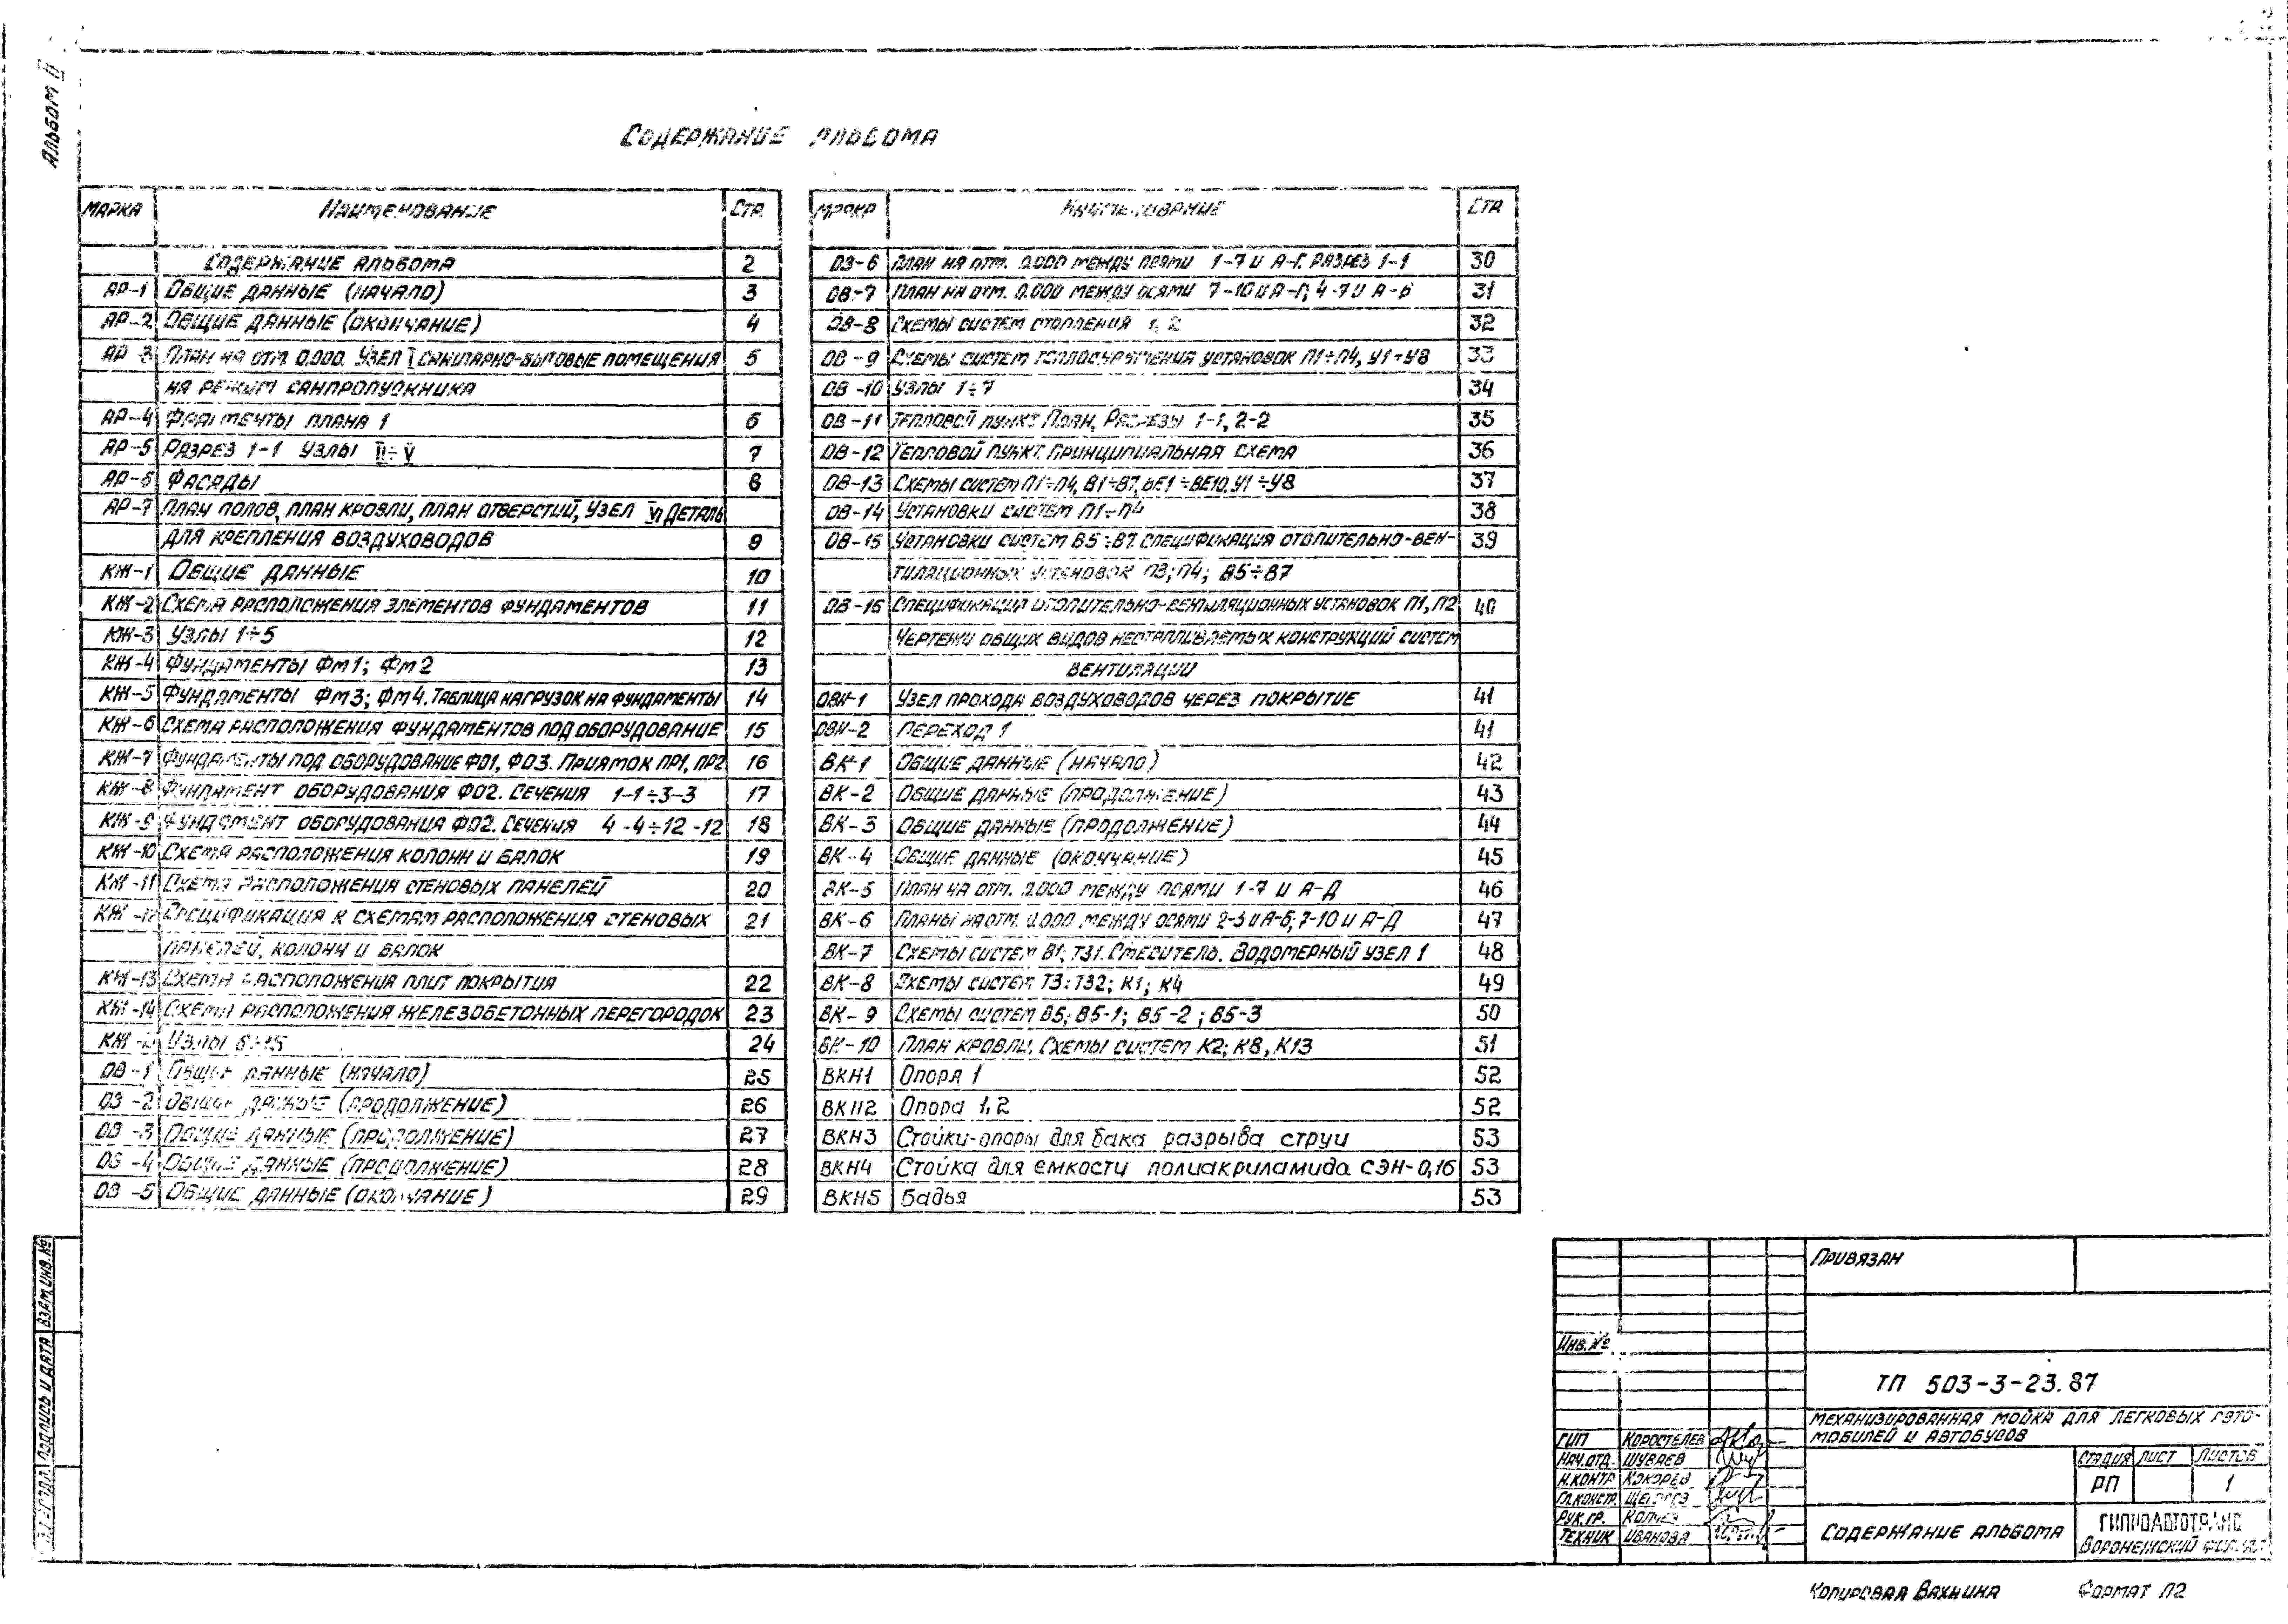 Альбом II
Содержание альбома
Марка Наименование Стр.
Содержание альбома 2
АР-1 Общие данные (начало) 3
АР-2 Общие данные (окончание) 4
АР-3 План на отм. 0.000. Узел I Санитарно-бытовые помещения 5
на режим санпропускника
АР-4 Фрагменты плана 1 6
АР-5 Разрез 1-1 Узлы II÷V 7
АР-6 Фасады 8
АР-7 План полов, план кровли, план отверстий, узел VI Деталь
для крепления воздуховодов 9
КЖ-1 Общие данные 10
КЖ-2 Схема расположения элементов фундаментов 11
КЖ-3 Узлы 1÷5 12
КЖ-4 Фундаменты Фм1; Фм2 13
КЖ-5 Фундаменты Фм3; Фм4. Таблица нагрузок на фундаменты 14
КЖ-6 Схема расположения фундаментов под оборудование 15
КЖ-7 Фундаменты под оборудование ФО1, ФО3. Приямок ПР1, ПР2 16
КЖ-8 Фундамент оборудования ФО2. Сечения 1-1÷3-3 17
КЖ-9 Фундамент оборудования ФО2. Сечения 4-4÷12-12 18
КЖ-10 Схема расположения колонн и балок 19
КЖ-11 Схема расположения стеновых панелей 20
КЖ-12 Спецификация к схемам расположения стеновых 21
панелей, колонн и балок
КЖ-13 Схема расположения плит покрытия 22
КЖ-14 Схема расположения железобетонных перегородок 23
КЖ- Узлы 6÷15 24
ОВ-1 Общие данные (начало) 25
ОВ-2 Общие данные (продолжение) 26
ОВ-3 Общие данные (продолжение) 27
ОВ-4 Общие данные (продолжение) 28
ОВ-5 Общие данные (окончание) 29
Марка Наименование Стр
ОВ-6 План на отм. 0.000 между осями 1-7 и А-Г. Разрез 1-1 30
ОВ-7 План на отм. 0.000 между осями 7-10 и А-Г; 4-7 и А-Б 31
ОВ-8 Схемы систем отопления 1, 2 32
ОВ-9 Схемы систем теплоснабжения установок П1÷П4, У1÷У8 33
ОВ-10 Узлы 1÷7 34
ОВ-11 Тепловой пункт План, Разрезы 1-1, 2-2 35
ОВ-12 Тепловой пункт. Принципиальная схема 36
ОВ-13 Схемы систем П1÷П4, В1÷В7, ВЕ1÷ВЕ10, У1÷У8 37
ОВ-14 Установки систем П1÷П4 38
ОВ-15 Установки систем В5÷В7. Спецификация отопительно-вен- 39
тиляционных установок П3; П4; В5÷В7
ОВ-16 Спецификация отопительно-вентиляционных установок П1, П2 40
Чертежи общих видов нестапливаемых конструкций систем
вентиляции
ОВН-1 Узел прохода воздуховодов через покрытие 41
ОВН-2 Переход 1 41
ВК-1 Общие данные (начало) 42
ВК-2 Общие данные (продолжение) 43
ВК-3 Общие данные (продолжение) 44
ВК-4 Общие данные (окончание) 45
ВК-5 План на отм. 0.000 между осями 1-7 и А-Д 46
ВК-6 Планы на отм. 0.000 между осями 2-3 и А-Б; 7-10 и А-Д 47
ВК-7 Схемы систем В1; Т31. Смеситель. Водомерный узел 1 48
ВК-8 Схемы систем Т3; Т32; К1; К4 49
ВК-9 Схемы систем В5; В5-1; В5-2; В5-3 50
ВК-10 План кровли. Схемы систем К2; К8, К13 51
ВКН1 Опора 1 52
ВКН2 Опора 1, 2 52
ВКН3 Стойки-опоры для бака разрыва струи 53
ВКН4 Стойка для емкости полиакриламида СЭН-0,16 53
ВКН5 Бадья 53
Взам. инв. №
Подпись и дата
Привязан
Инв. №
ТП 503-3-23.87
Механизированная мойка для легковых авто-
мобилей и автобусов
ГИП Коростелев
Нач. отд. Шуваев
Н. контр Кокорев
Гл. констр.
Рук. гр.
Техник Иванова
Стадия Лист Листов
РП 1
Содержание альбома
Гипроавтотранс
Воронежский филиал
Копировал Вахнина Формат А2